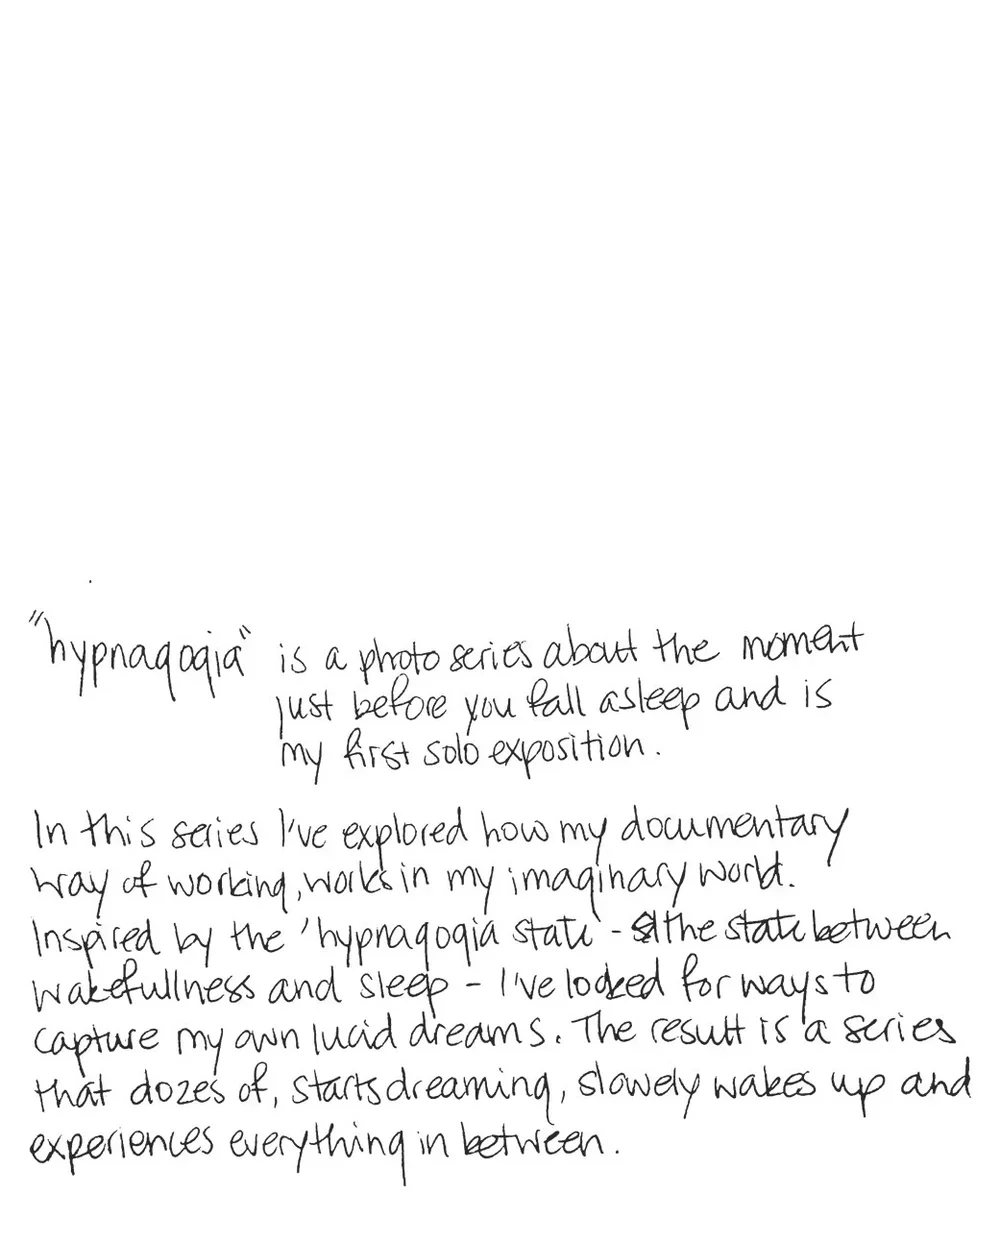 "hypnagogia" is a photo series about the moment
just before you fall asleep and is
my first solo exposition.
In this series I've explored how my documentary
way of working, works in my imaginary world.
Inspired by the 'hypnagogia state' - the state between
wakefullness and sleep - I've looked for ways to
capture my own lucid dreams. The result is a series
that dozes of, starts dreaming, slowely wakes up and
experiences everything in between.